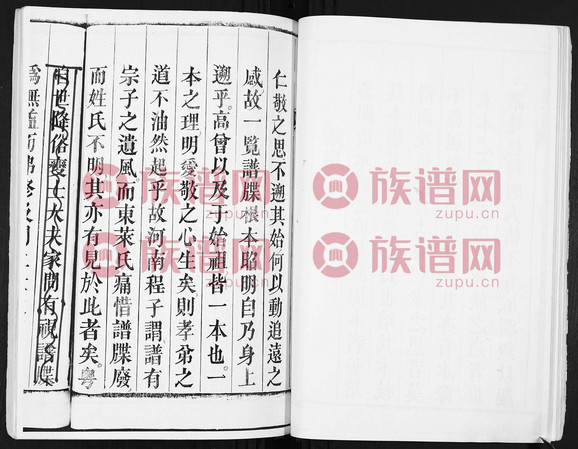 仁敬之思不遡其始何以動追遠之
感故一覧譜牒根本昭明自乃身上
遡乎高曾以及于始祖皆一本也一
本之理明愛敬之心生矣則孝弟之
道不油然起乎故河南程子謂譜有
宗子之遺風而東萊氏痛惜譜牒廢
而姓氏不明其亦有見於此者矣粤
自世降俗變士大夫家間有視譜牒
為無益而弗
族谱网
zupu.cn
族谱网
zupu.cn
族谱网
zupu.cn
族谱网
zupu.cn